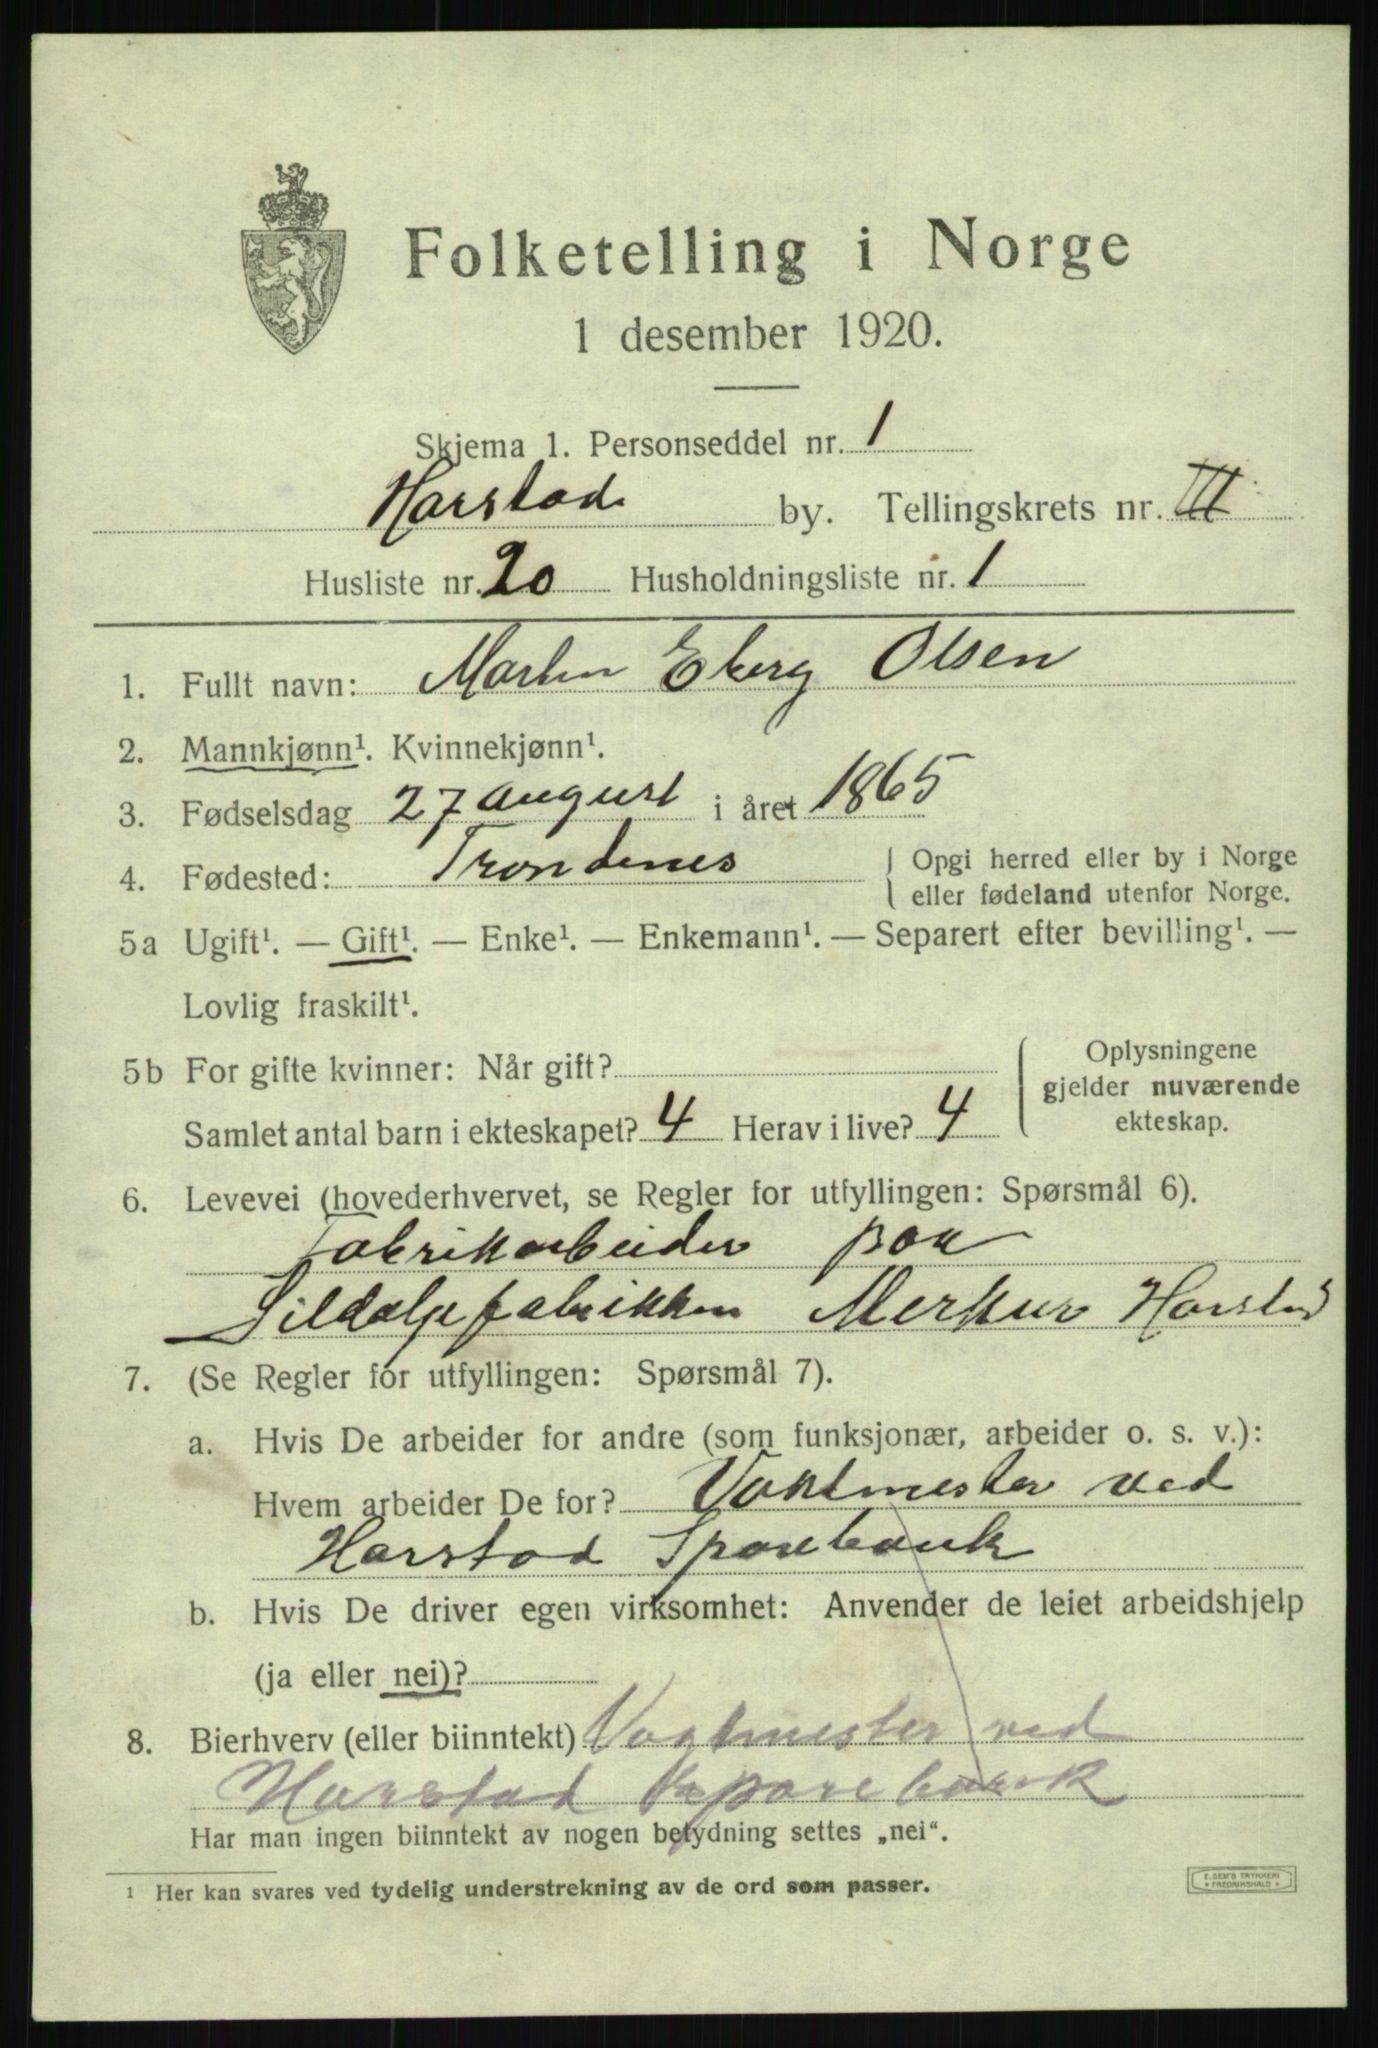 Folketelling i Norge
1 desember 1920.
Skjema 1. Personseddel nr. 1
Harstad by. Tellingskrets nr. III
Husliste nr. 20 Husholdningsliste nr. 1
1. Fullt navn: Martin Eberg Olsen
2. Mannkjønn¹. Kvinnekjønn¹.
3. Fødselsdag 27 august i året 1865
4. Fødested: Trondenes
Opgi herred eller by i Norge
eller fødeland utenfor Norge.
5a Ugift¹. — Gift¹. — Enke¹. — Enkemann¹. — Separert efter bevilling¹. —
Lovlig fraskilt¹.
5b For gifte kvinner: Når gift?
Samlet antal barn i ekteskapet? 4 Herav i live? 4
Oplysningene
gjelder nuværende
ekteskap.
6. Levevei (hovederhvervet, se Regler for utfyllingen: Spørsmål 6).
Fabrikarbeider paa
Sildoljefabrikken Merkur Harstad
7. (Se Regler for utfyllingen: Spørsmål 7).
a. Hvis De arbeider for andre (som funksjonær, arbeider o. s. v.):
Hvem arbeider De for? Vaktmester ved
Harstad Sparebank
b. Hvis De driver egen virksomhet: Anvender de leiet arbeidshjelp
(ja eller nei)?
8. Bierhverv (eller biinntekt) Vagtmester ved
Harstad Sparebank
Har man ingen biinntekt av nogen betydning settes „nei".
¹ Her kan svares ved tydelig understrekning av de ord som passer.
E. SEM'S TRYKKERI
* FREDRIKSHALD *